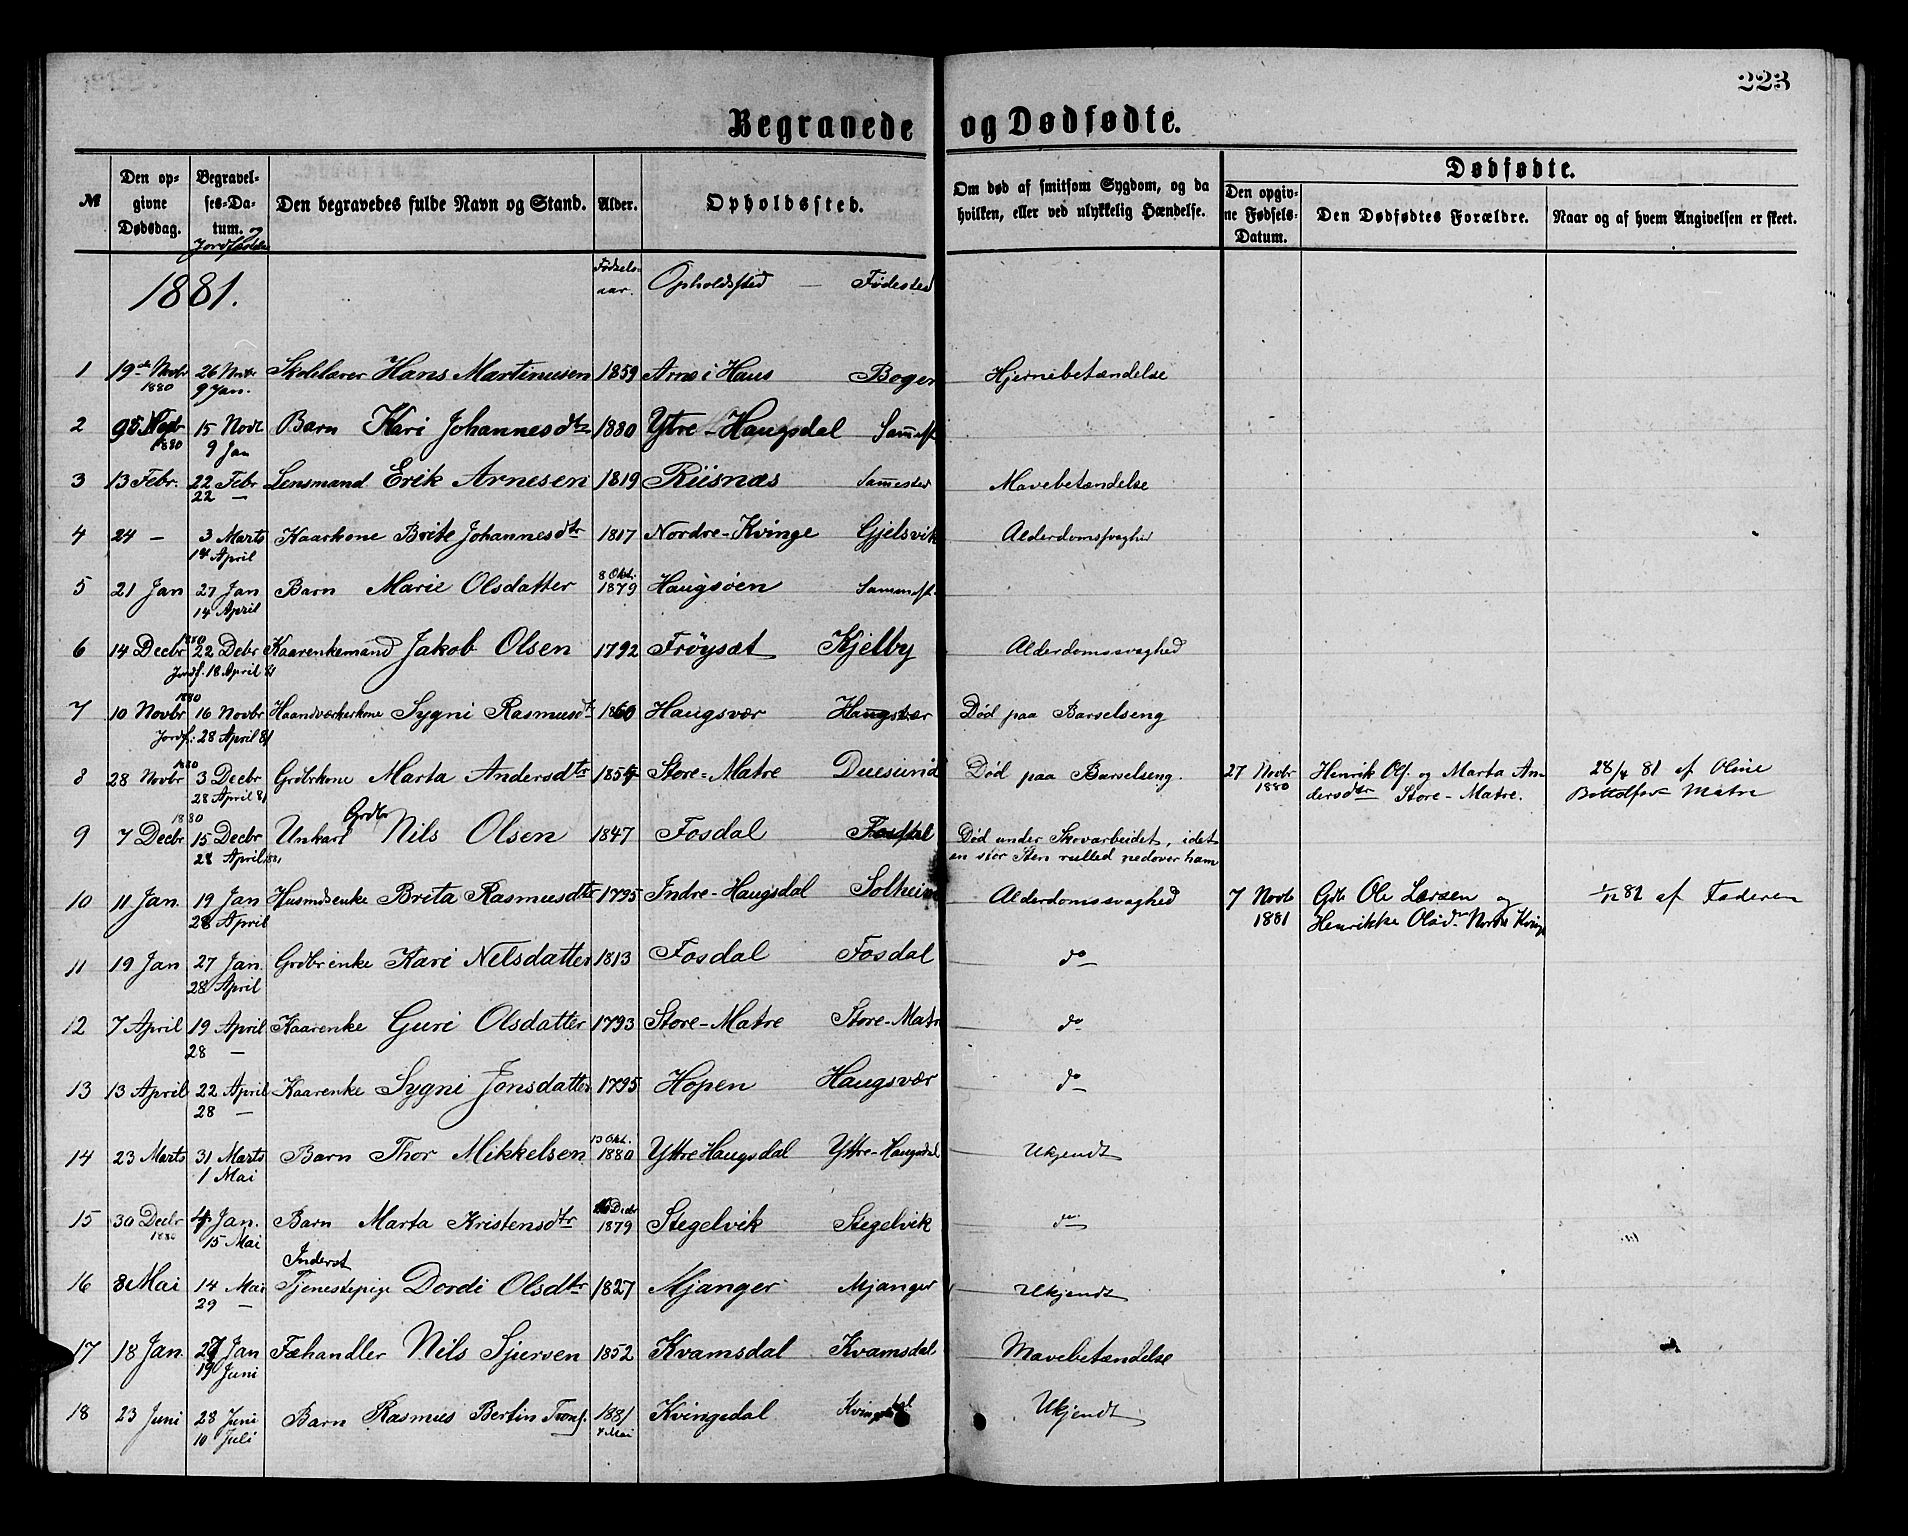 223
Begravede og Dødfødte.
№
Den opgivne Dødsdag.
Begravelses-Datum. og Jordfæstelse
Den begravedes fulde Navn og Stand.
Alder.
Opholdssted.
Om død af smitsom Sygdom, og da hvilken, eller ved ulykkelig Hændelse.
Dødfødte.
Den opgivne Fødsels-Datum.
Den Dødfødtes Forældre.
Naar og af hvem Angivelsen er skeet.
1881. Fødselsaar. Opholdssted — Fødested
1 19de Novbr 1880 26 Novbr 9 Jan. Skolelærer Hans Martinusen 1859 Arne i Haus Bogen Hjernebetændelse
2 Novbr 1880 15 Novbr 9 Jan Barn Kari Johannesdtr 1880 Ytre-Haugsdal Sammest
3 13 Febr. 22 Febr 22 — Lensmand Erik Arnesen 1819 Riisnæs Sammested Mavebetændelse
4 24 — 3 Marts 14 April Kaarkone Brite Johannesdtr 1817 Nordre-Kvinge Gjelsvik Alderdomssvaghed
5 21 Jan 27 Jan 14 April Barn Marie Olsdatter 8 Okt. 1879 Haugsøen Sammest.
6 14 Decbr 1880 22 Debr Jordf. 18 April 81 Kaarenkemand Jakob Olsen 1792 Frøysæt Kjelby Alderdomssvaghed
7 10 Novbr 1880 16 Novbr Jordf: 28 April 81 Haandværkerkone Sygni Rasmusdtr 1860 Haugsvær Haugsvær Død paa Barselseng
8 28 Novbr 1880 3 Decbr 28 April 81 Grdbrkone Marta Andersdtr 1854 Store-Matre Duesund Død paa Barselseng. 27 Novbr 1880 Henrik Ols. og Marta Andersdtr Store-Matre. 28/4 81 af Oline Matre
9 7 Decbr 1880 15 Decbr 28 April 81 Unkarl Grdbr Nils Olsen 1847 Fosdal Fosdal Død under Skovarbeidet, idet en stor Sten rulled nedover ham
10 11 Jan. 19 Jan 28 April Husmdsenke Brita Rasmusdtr 1795 Indre-Haugsdal Solheim Alderdomssvaghed 7 Novb 1881 Gdb Ole Larsen og Henrikke Olsdr Nordre Kvinge 1/12 81 af Faderen
11 19 Jan 27 Jan. 28 April Grdbrenke Kari Nelsdatter 1813 Fosdal Fosdal do
12 7 April 19 April 28 — Kaarenke Guri Olsdatter 1793 Store-Matre Store-Matr do
13 13 April 22 April 28 — Kaarenke Sygni Jonsdatter 1795 Hopen Haugsvær do
14 23 Marts 31 Marts 1 Mai Barn Thor Mikkelsen 13 Okt. 1880 Yttre Haugsdal Yttre-Haugsdal Ukjendt
15 30 Decbr 1880 4 Jan. 15 Mai Barn Marta Kristensdtr Decbr 1879 Stegelvik Stegelvik do
16 8 Mai 14 Mai 29 — Inderst Tjenestepige Dordi Olsdtr 1827 Mjanger Mjanger Ukjendt
17 18 Jan. 27 Jan 19 Juni Fæhandler Nils Sjursen 1852 Kvamsdal Kvamsdal Mavebetændelse
18 23 Juni 28 Juni 10 Juli Barn Rasmus Bertin 1881 4 Mai Kvingedal Kvingedal Ukjendt